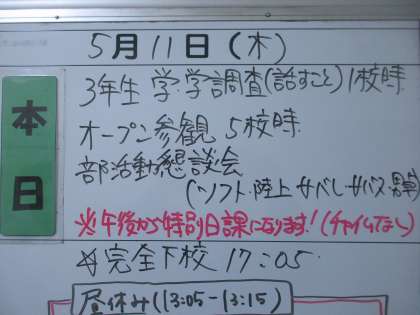 5月11日(木)
本日
3年生 学・学調査(話すこと)1校時
オープン参観 5校時
部活動懇談会
(ソフト・陸上・サベし・サバス・男卓)
※午後から特別日課になります!(チャイムなし)
☆完全下校 17:05
昼休み(13:05-13:15)